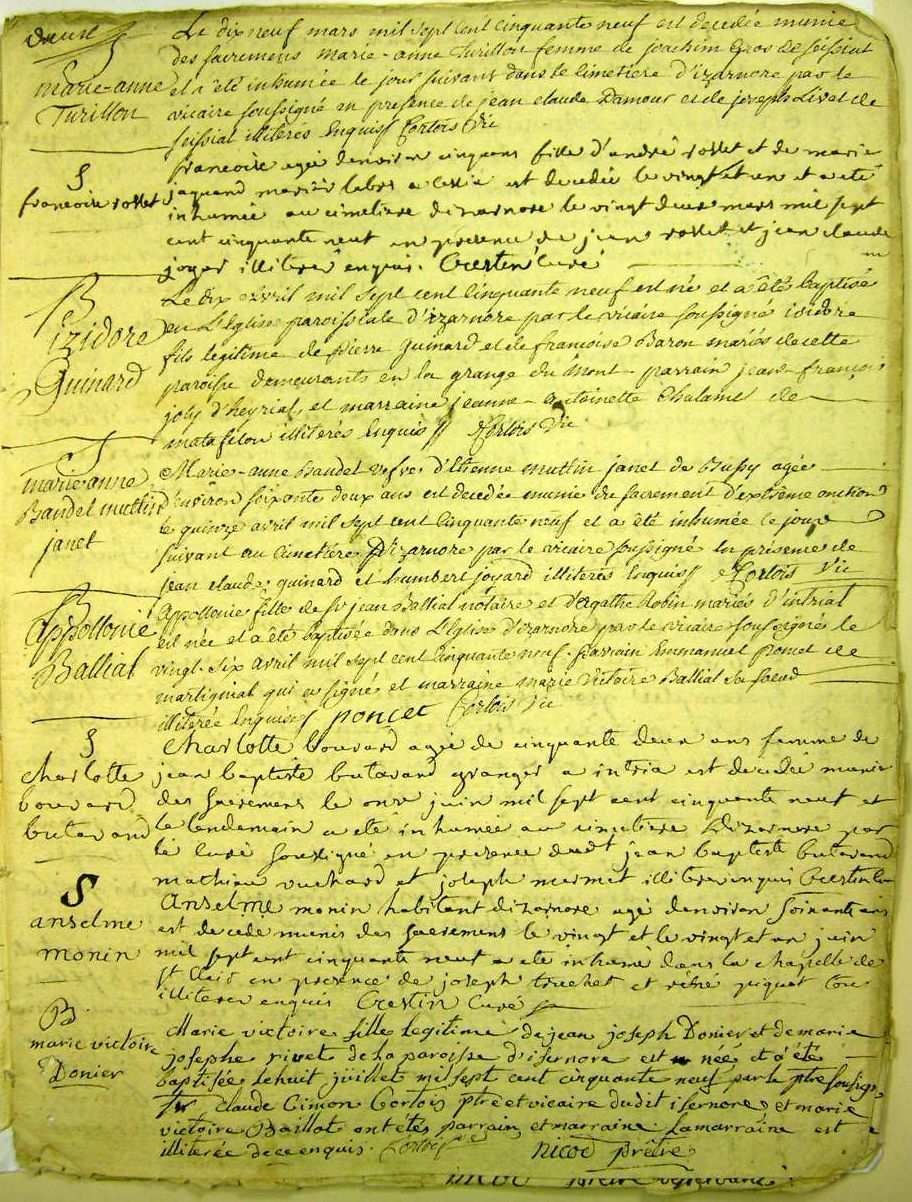 marie-anne
Turillon
Le dix neuf mars mil sept cent cinquante neuf est decedée munie
des sacremens marie-anne Turillon femme de joachim Gros de
et a été inhumée le jour suivant dans le cimetiere d'izarnore par le
vicaire soussigné en presence de jean claude Damour et de joseph Livet de
illiterés Enquis Cortois Vic
S
francoise rosset
francoise agée denviron cinq ans fille d'andré rosset et de marie
jaquand mariés est decedée le vingt et un et a eté
inhumée au cimetiere dizarnore le vingt deux mars mil sept
cent cinquante neuf en presence de jean rosset et jean claude
joyar illiterés enquis. Crestin Curé
B
izidore
Guinard
Le dix avril mil sept cent cinquante neuf est né et a été baptisé
en L'Eglise paroissiale d'izarnore par le vicaire soussigné isidore
fils legitime de pierre guinard et de francoise Baron mariés de cette
paroisse demeurants en la grange du mont parrain jean françois
joly d'heyriat et marraine jeanne-antoinette Chalamel de
matafelon illiterés Enquis Cortois Vic
S
marie anne
Baudet muttin
janet
Marie-anne Baudet vefve d'Etienne muttin janet de Bussy agée
d'environ soixante deux ans est decedée munie du sacrement d'extrême onction
le quinze avril mil sept cent cinquante neuf et a été inhumée le jour
suivant au cimetiére d'izarnore par le vicaire soussigné En presence de
jean claude guinard et humbert joyard illiterés Enquis Cortois Vic
B
appollonie
Balliat
Appollonie fille de Sr jean Balliat notaire et d'agathe Robin mariés d'intriat
est née et a été baptisée dans L'Eglise d'izarnore par le vicaire soussigné le
vingt-six avril mil sept cent cinquante neuf. parrain Emmanuel Poncet de
martignat qui a signé et marraine marie victoire Balliat sa soeur
illiterée Enquis poncet Cortois Vic
S
charlotte
bouvard
butavand
Charlotte bouvard agée de cinquante deux ans femme de
jean baptiste butavand granger a intria est decedée munie
des sacremens le onze juin mil sept cent cinquante neuf et
le lendemain a eté inhumée au cimetiere dizarnore par
le curé soussigné en presence dudt jean baptiste butavand
mathieu vuchard et joseph mermet illiteres enquis Crestin
S
anselme
monin
Anselme monin habitant dizarnore agé denviron soixante ans
est decedé munis des sacremens le vingt et le vingt et un juin
mil sept cent cinquante neuf a eté inhumé dans la chapelle de
St Claude en presence de joseph truchet et réné piquet tous
illiteres enquis Crestin Curé
B
marie victoire
Donier
Marie victoire fille legitime de jean joseph Donier et de marie
josephe rivet de la paroisse d'isernore est née et a été
baptisée le huit jüillet mil sept cent cinquante neuf par le ptre soussigné
Claude Cimon Cortois ptre et vicaire dudit isernore, et marie
victoire Baillat ont étés parrain et marraine La marraine est
illiterée de ce enquis. Cortois nicod prêtre